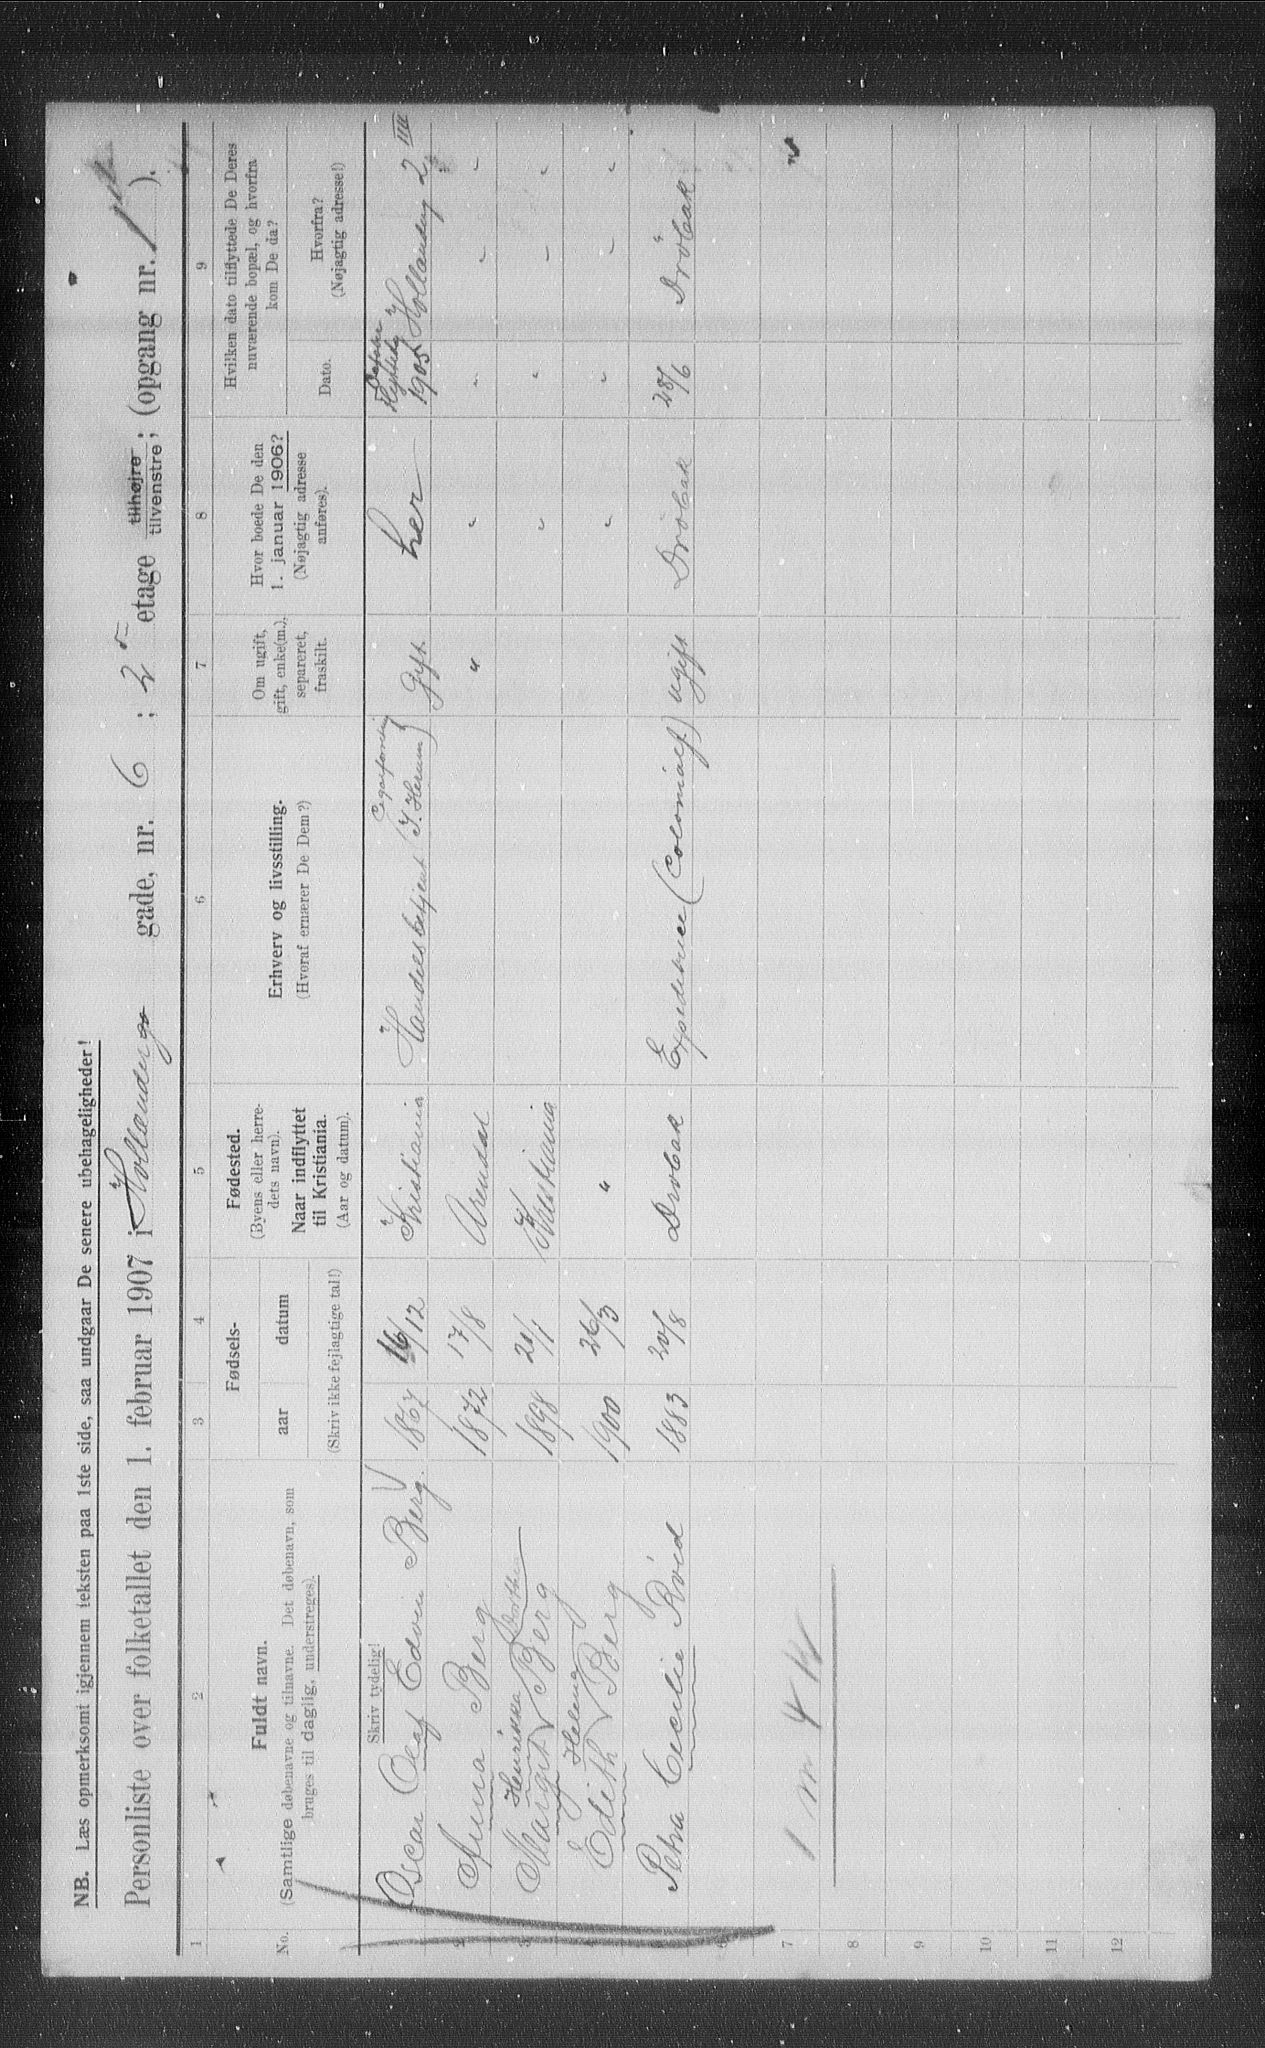 NB. Læs opmerksomt igjennem teksten paa 1ste side, saa undgaar De senere ubehageligheder!
Personliste over folketallet den 1. februar 1907 i Hollænderga gade, nr. 6 ; 2 etage tilhøjre tilvenstre; (opgang nr. 1 ).
1 2 3 4 5 6 7 8 9
No. Fuldt navn.
(Samtlige døbenavne og tilnavne. Det døbenavn, som
bruges til daglig, understreges).
Fødsels-
aar datum
(Skriv ikke fejlagtige tal!)
Fødested.
(Byens eller herre-
dets navn).
Naar indflyttet
til Kristiania.
(Aar og datum).
Erhverv og livsstilling.
(Hvoraf ernærer De Dem?)
Om ugift,
gift, enke(m.),
separeret,
fraskilt.
Hvor boede De den
1. januar 1906?
(Nøjagtig adresse
anføres).
Hvilken dato tilflyttede De Deres
nuværende bopæl, og hvorfra
kom De da?
Dato.
Hvorfra?
(Nøjagtig adresse!)
Skriv tydelig!
Oscar Olaf Edvin Berg. 1867 16/12 Kristiania Handelsbetjent (J. Herum) Gift her 1905 Hollænderg 2 IIII
2 Anna Berg 1872 17/8 Arendal " " " " "
Henrikke
3 Margit Berg 1898 20/1 Kristiania " " " "
Helena
4 Edith Berg 1900 26/3 " " " " "
Petra Cecilie Roed 1883 20/8 Drøbak Expeditrice (Colonialf) ugift Drøbak 28/6 Drøbak
6
7 1 m 4 k
8
9
10
11
12